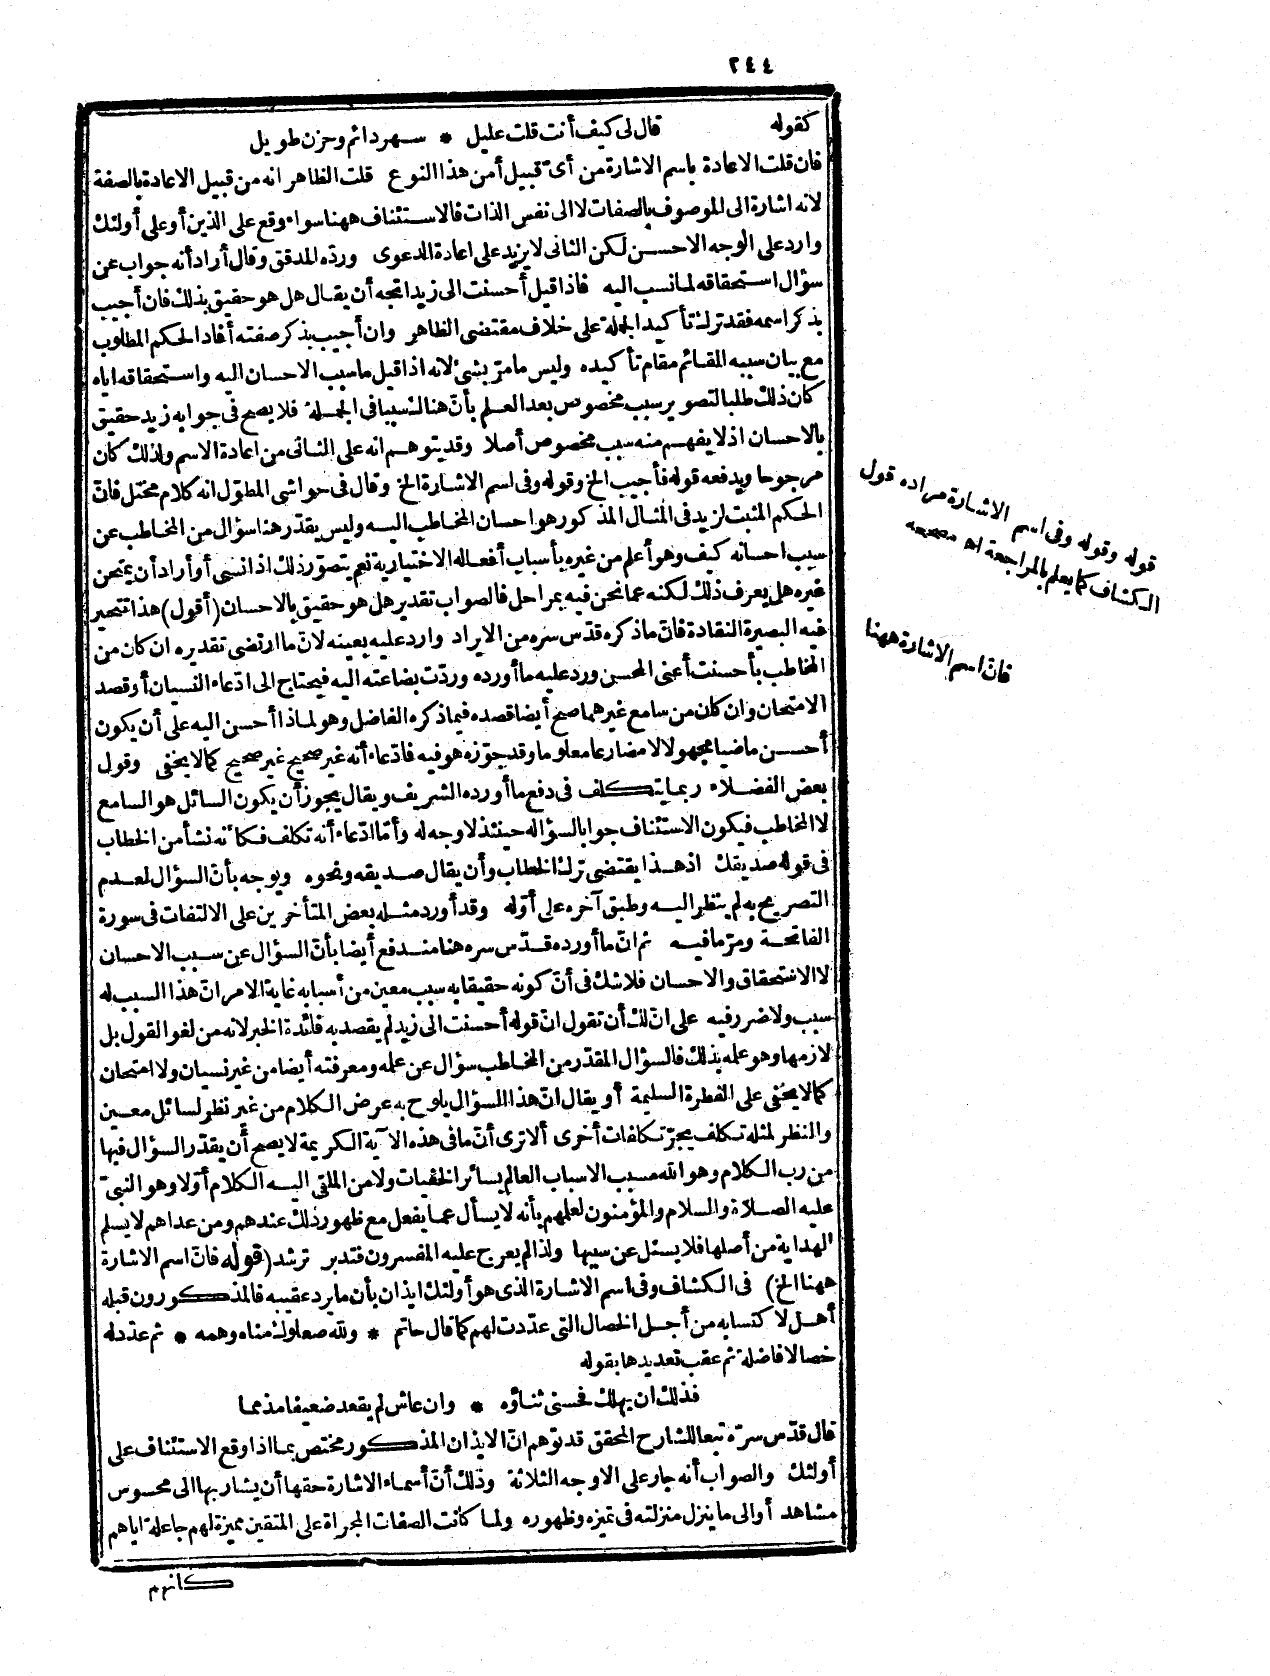 ٢٤٤
كقوله قال لى كيف أنت قلت عليل * سهر دائم وحزن طويل
فان قلت الاعادة باسم الاشارة من أىّ قبيل أمن هذا النوع قلت الظاهر انه من قبيل الاعادة بالصفة
لانه اشارة الى الموصوف بالصفات لا الى نفس الذات فالاستئناف ههنا سواء وقع على الذين أو على أولئك
وارد على الوجه الاحسن لكن الثانى لا يزيد على اعادة الدعوى وردّه المدقق وقال أراد أنه جواب عن
سؤال استحقاقه لما نسب اليه فاذا قيل أحسنت الى زيد اتجه أن يقال هل هو حقيق بذلك فان أجيب
بذكر اسمه فقد ترك تأكيد الجملة على خلاف مقتضى الظاهر وان أجيب بذكر صفته أفاد الحكم المطلوب
مع بيان سببه القائم مقام تأكيده وليس ما مرّ بشئ لانه اذا قيل ما سبب الاحسان اليه واستحقاقه اياه
كان ذلك طلبا لتصوير سبب مخصوص بعد العلم بأنّ هنالك سببا فى الجملة فلا يصح فى جوابه زيد حقيق
بالاحسان اذ لا يفهم منه سبب مخصوص أصلا وقد يتوهم انه على الثانى من اعادة الاسم ولذلك كان
مرجوحا ويدفعه قوله فأجيب الخ وقوله وفى اسم الاشارة الخ وقال فى حواشى المطوّل انه كلام مختل فانّ
الحكم المثبت لزيد فى المثال المذكور هو احسان المخاطب اليه وليس يقدّر هنا سؤال من المخاطب عن
سبب احسانه كيف وهو أعلم من غيره بأسباب أفعاله الاختيارية نعم يتصوّر ذلك اذا نسى أو أراد أن يمتحن
غيره هل يعرف ذلك لكنه عما نحن فيه بمراحل فالصواب تقدير هل هو حقيق بالاحسان (أقول) هذا تتحير
فيه البصيرة النقادة فانّ ما ذكره قدّس سره من الايراد وارد عليه بعينه لانّ ما ارتضى تقديره ان كان من
المخاطب بأحسنت أعنى المحسن ورد عليه ما أورده وردّت بضاعته اليه فيحتاج الى ادّعاء النسيان أو قصد
الامتحان وان كان من سامع غيرهما صح أيضا قصده فيما ذكره الفاضل وهو لماذا أحسن اليه على أن يكون
أحسن ماضيا مجهولا لا مضارعا معلوما وقد جوّزه هو فيه فادّعاء أنه غير صحيح غير صحيح كما لا يخفى وقول
بعض الفضلاء ربما يتكلف فى دفع ما أورده الشريف ويقال يجوز أن يكون السائل هو السامع
لا المخاطب فيكون الاستئناف جوابا لسؤاله حينئذ لا وجه له وأمّا ادّعاء أنه تكلف فكأنه نشأ من الخطاب
فى قوله صديقك اذ هذا يقتضى ترك الخطاب وأن يقال صديقه ونحوه ويوجه بأنّ السؤال لعدم
التصريح به لم ينظر اليه وطبق آخره على أوّله وقد أورد مثله بعض المتأخرين على الالتفات فى سورة
الفاتحة ومرّ ما فيه ثم انّ ما أورده قدّس سره هنا مندفع أيضا بأنّ السؤال عن سبب الاحسان
لا الاستحقاق والاحسان فلا شك فى أنّ كونه حقيقا به سبب معين من أسبابه غاية الامر انّ هذا السبب له
سبب ولا ضرر فيه على انّ لك أن تقول انّ قوله أحسنت الى زيد لم يقصد به فائدة الخبر لانه من لغو القول بل
لازمها وهو علمه بذلك فالسؤال المقدّر من المخاطب سؤال عن علمه ومعرفته أيضا من غير نسيان ولا امتحان
كما لا يخفى على الفطرة السليمة أو يقال انّ هذا السؤال يلوح به عرض الكلام من غير نظر لسائل معين
والنظر لمثله تكلف يجرّ تكلفات أخرى ألا ترى أنّ ما فى هذه الآية الكريمة لا يصح أن يقدّر السؤال فيها
من رب الكلام وهو الله مسبب الاسباب العالم بسائر الخفيات ولا من الملقى اليه الكلام أوّلا وهو النبىّ
عليه الصلاة والسلام والمؤمنون لعلمهم بأنه لا يسأل عما يفعل مع ظهور ذلك عندهم ومن عداهم لا يسلم
الهداية من أصلها فلا يسئل عن سببها ولذا لم يعرج عليه المفسرون فتدبر ترشد (قوله فانّ اسم الاشارة
ههنا الخ) فى الكشاف وفى اسم الاشارة الذى هو أولئك ايذان بأن ما يرد عقيبه فالمذكورون قبله
أهل لاكتسابه من أجل الخصال التى عدّدت لهم كما قال حاتم * ولله صعلوك مناه وهمه * ثم عدّد له
خصالا فاضلة ثم عقب تعديدها بقوله
فذلك ان يهلك فحسنى ثناؤه * وان عاش لم يقعد ضعيفا مذمما
قال قدّس سرّه تبعا للشارح المحقق قد توّهم انّ الايذان المذكور مختص بما اذا وقع الاستئناف على
أولئك والصواب أنه جار على الاوجه الثلاثة وذلك أنّ أسماء الاشارة حقها أن يشار بها الى محسوس
مشاهد أو الى ما ينزل منزلته فى تميزه وظهوره ولما كانت الصفات المجراة على المتقين مميزة لهم جاعلة اياهم
كانهم
قوله وقوله وفى اسم الاشارة مراده قول
الكشاف كما يعلم بالمراجعة اه مصححه
فانّ اسم الاشارة ههنا